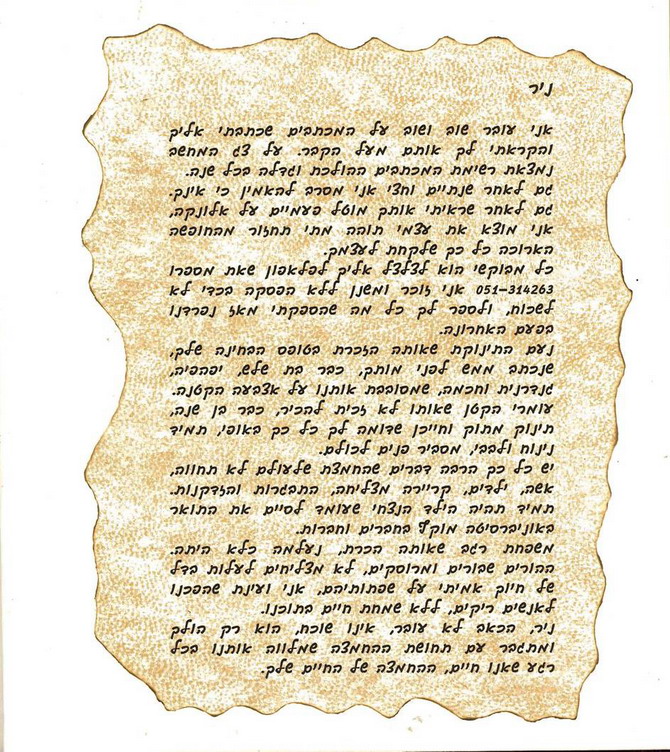 ניר
אני עובר שוב ושוב על המכתבים שכתבתי אליך
והקראתי לך אותם מעל הקבר. על צג המחשב
נמצאת רשימת המכתבים ההולכת וגדלה בכל שנה.
גם לאחר שנתיים וחצי אני מסרב להאמין כי אינך.
גם לאחר שראיתי אותך מוטל פעמיים על אלונקה,
אני מוצא את עצמי תוהה מתי תחזור מהחופשה
הארוכה כל כך שלקחת לעצמך.
כל מבוקשי הוא לצלצל אליך לפלאפון שאת מספרו
051-314263 אני זוכר ומשנן ללא הפסקה בכדי לא
לשכוח, ולספר לך כל מה שהספקתי מאז נפרדנו
בפעם האחרונה.
נעם התינוקת שאותה הזכרת בטופס הבחינה שלך,
שנכתב ממש לפני מותך, כבר בת שלש, יפהפיה,
גנדרנית וחכמה, שמסובבת אותנו על אצבעה הקטנה.
עומרי הקטן שאותו לא זכית להכיר, כבר בן שנה,
תינוק מתוק וחייכן שדומה לך כל כך באופי, תמיד
נינוח ולבבי, מסביר פנים לכולם.
יש כל כך הרבה דברים שהחמצת שלעולם לא תחווה,
אשה, ילדים, קריירה מצליחה, התבגרות והזדקנות.
תמיד תהיה הילד הנצחי שעומד לסיים את התואר
באוניברסיטה מוקף בחברים וחברות.
משפחת רגב שאותה הכרת, נעלמה כלא היתה.
ההורים שבורים ומרוסקים, לא מצליחים לעלות בדל
של חיוך אמיתי על שפתותיהם, אני ועינת שהפכנו
לאנשים ריקים, ללא שמחת חיים בתוכנו.
ניר, הכאב לא עובר, אינו שוכח, הוא רק הולך
ומתגבר עם תחושת ההחמצה שמלווה אותנו בכל
רגע שאנו חיים, ההחמצה של החיים שלך.